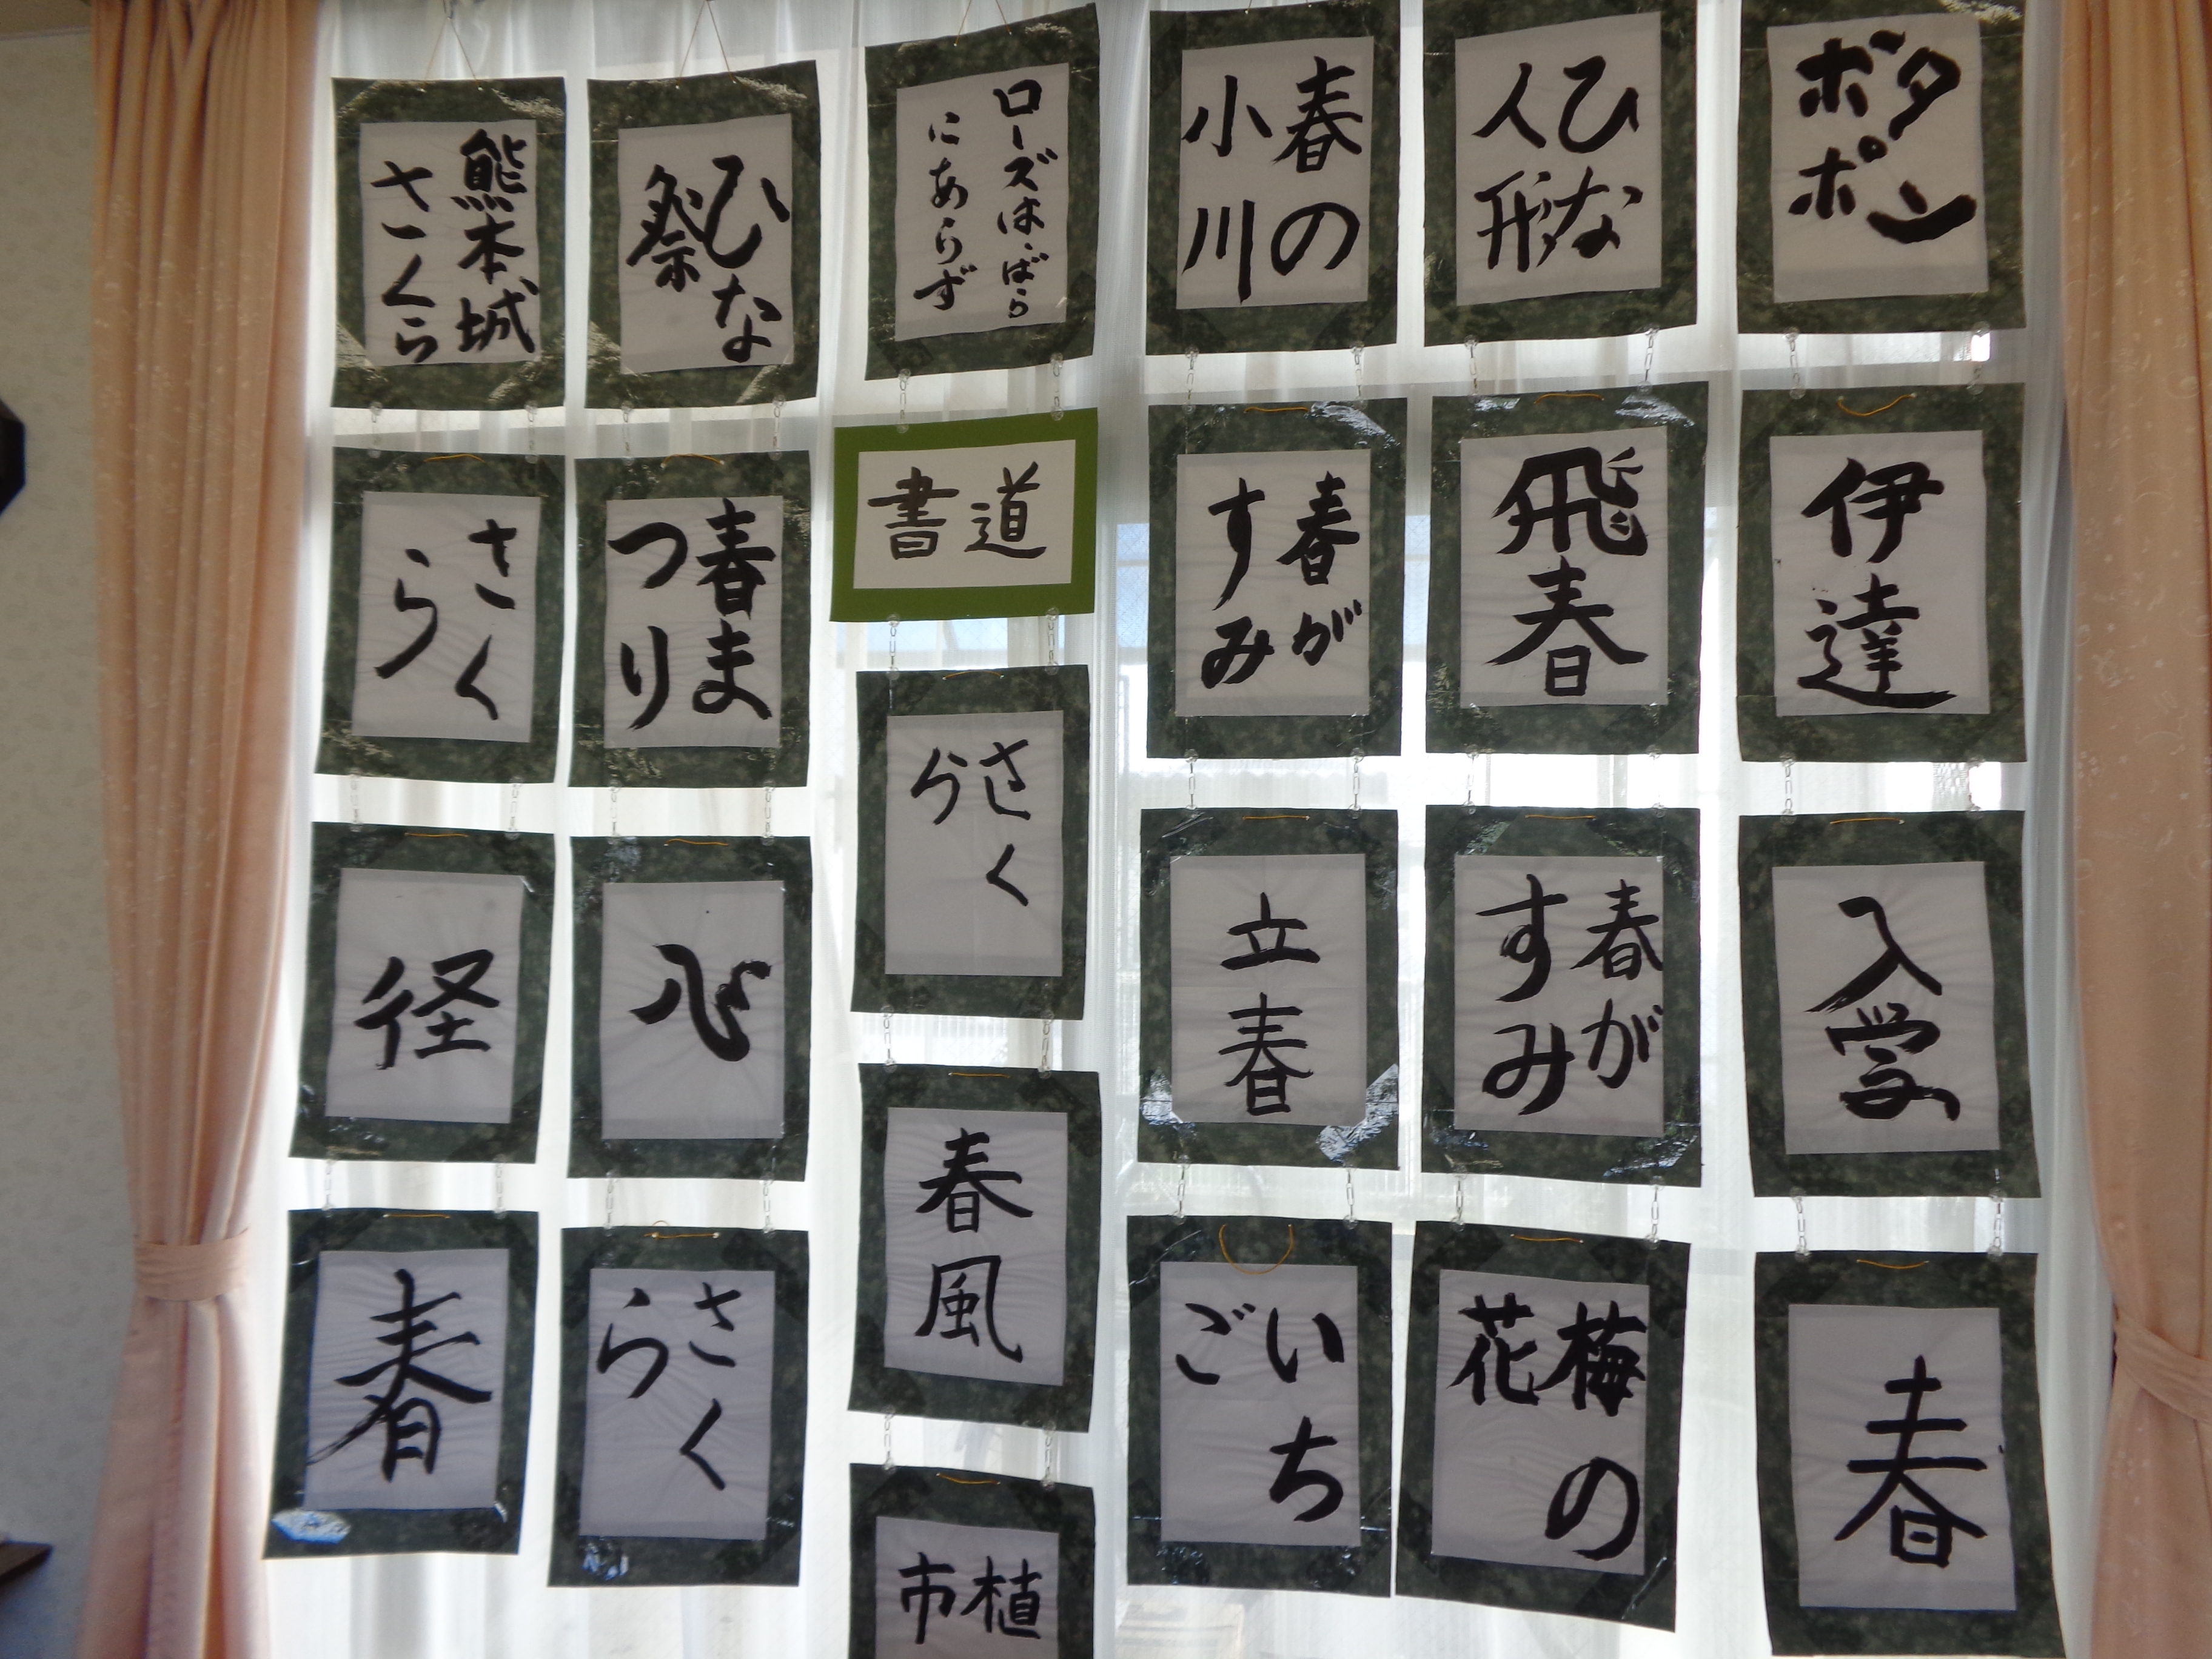 熊本城
さくら
ひな
祭
ローズは、ばら
にあらず
春の
小川
ひな
人形
タン
ボポ
さく
ら
春ま
つり
書道
春が
すみ
飛春
伊達
径
心
さく
ら
立春
春が
すみ
入学
春
さく
ら
春風
いち
ご
梅の
花
春
植
市